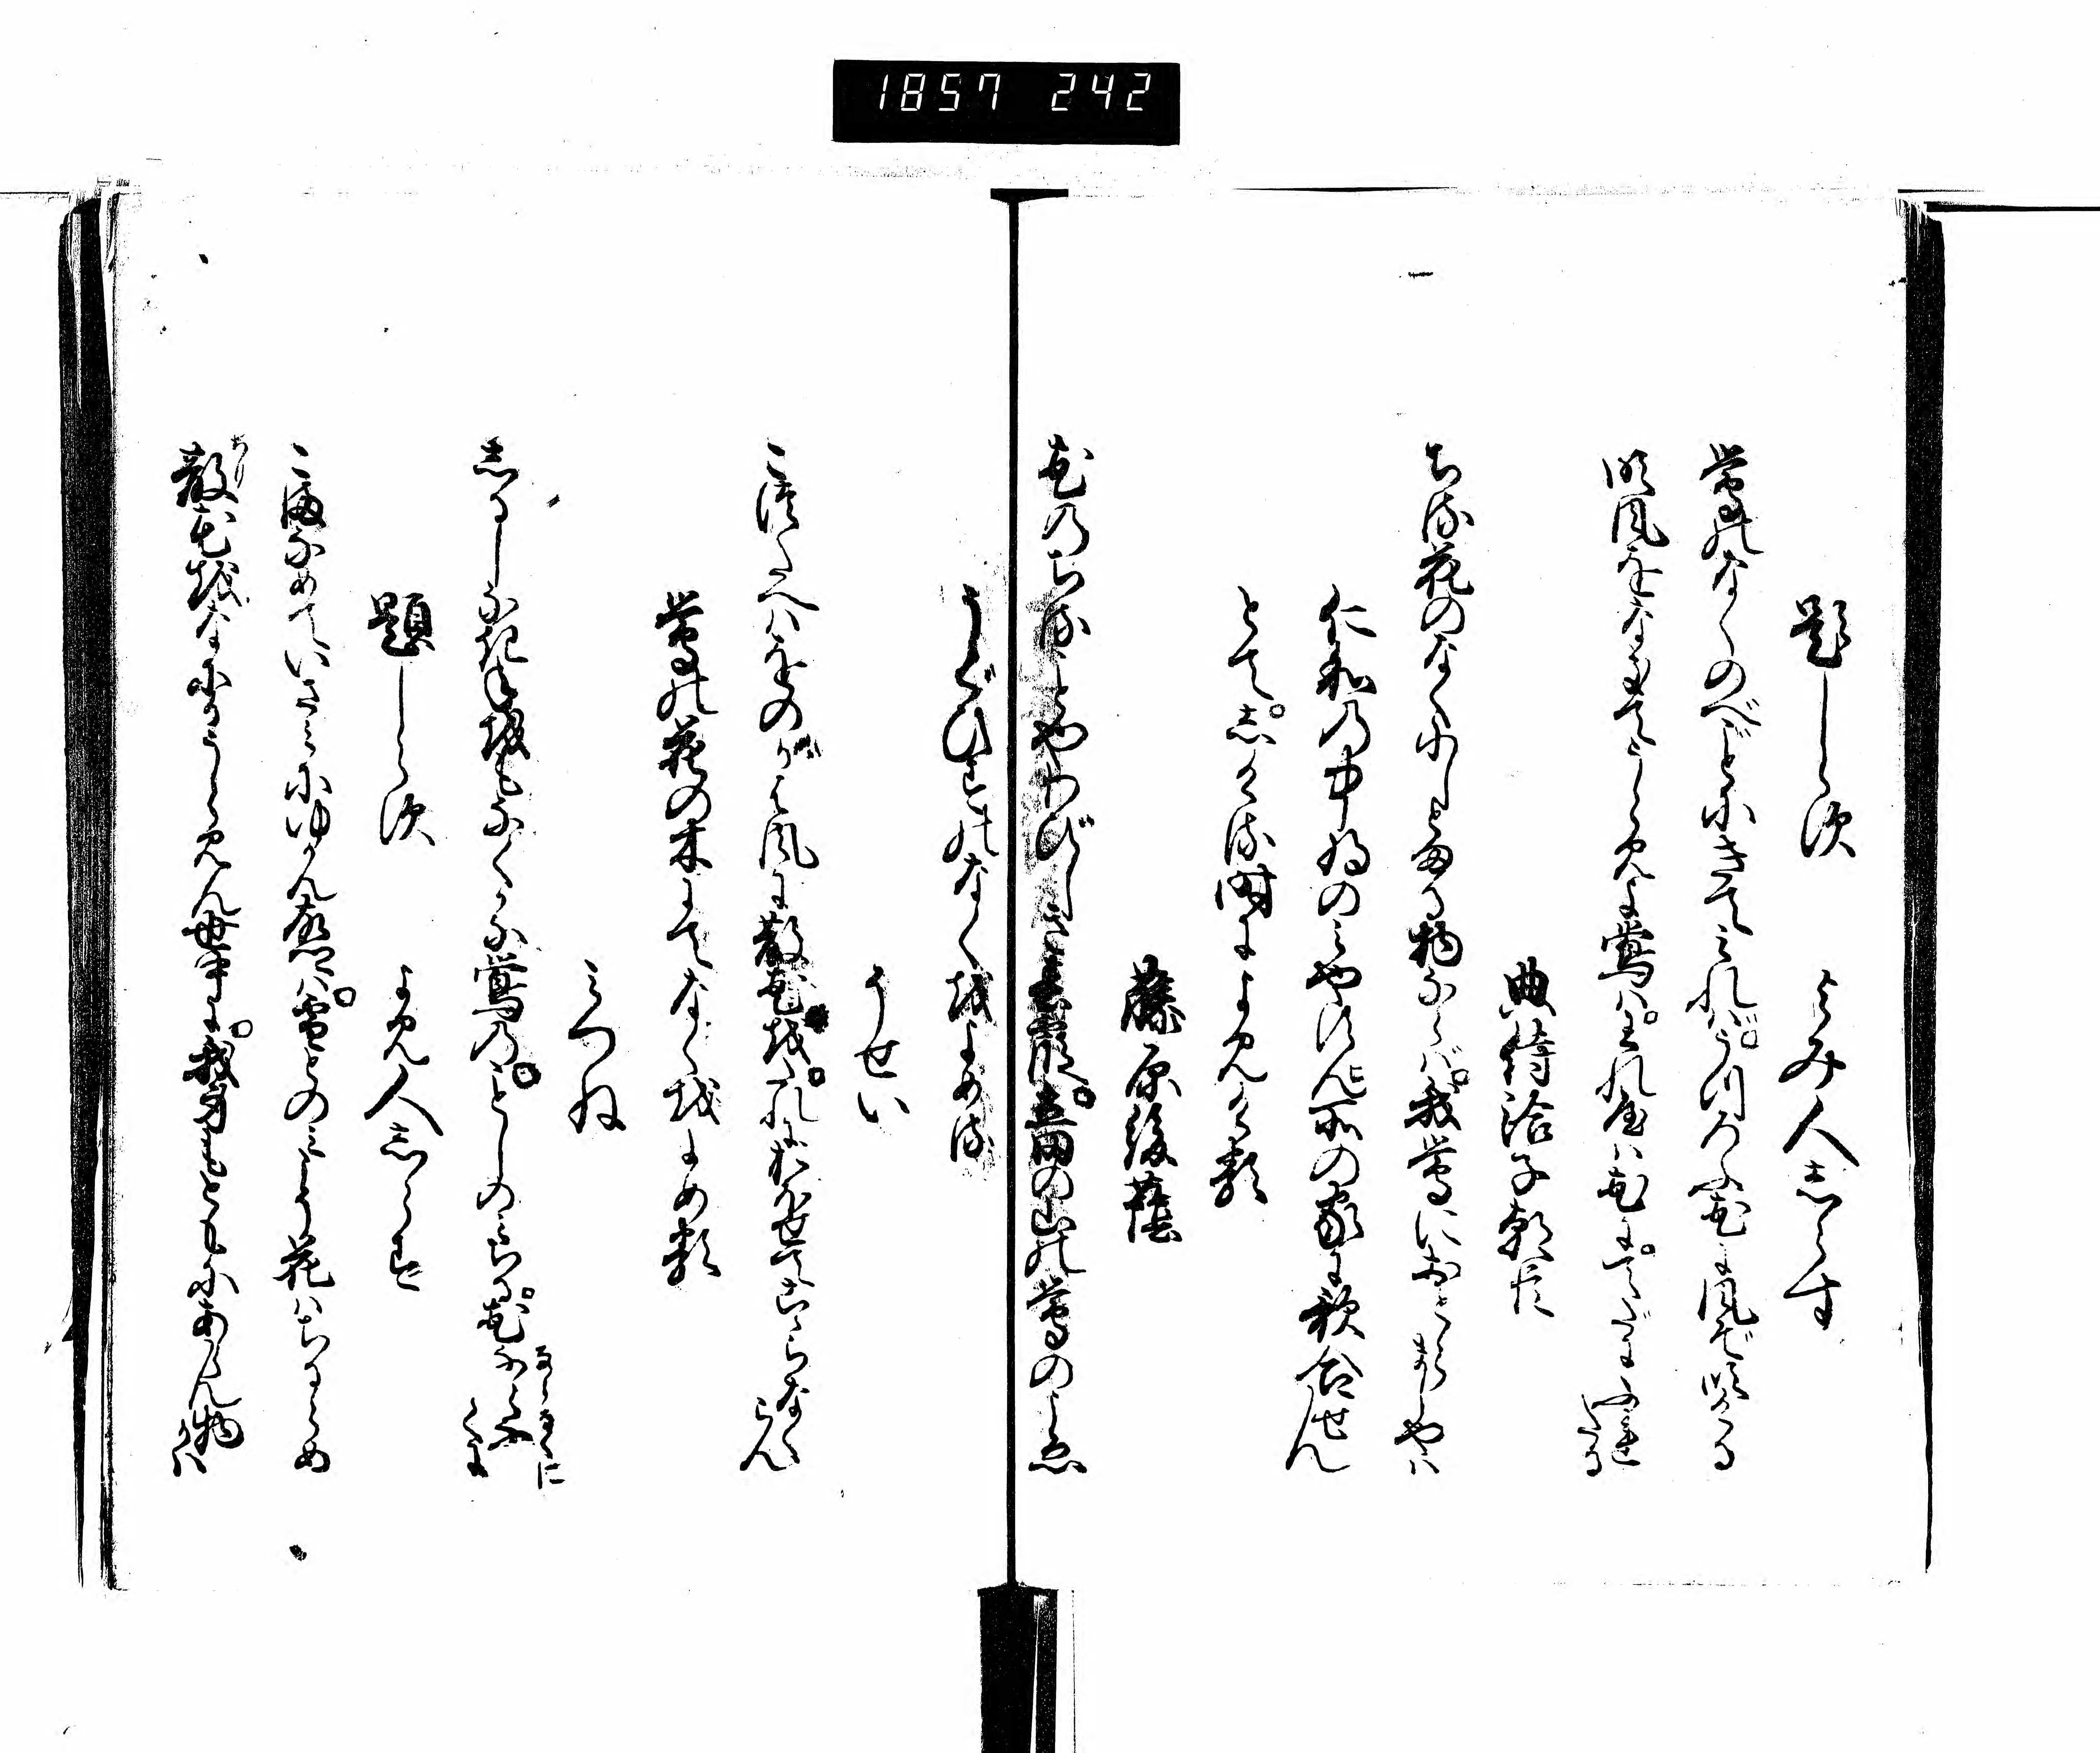 1857 242
題しらす
よみ人しらす
鶯のなくのべごとにきてみればうつろふ花に風ぞ吹ける
吹風をなきてうらみよ鶯は我やは花に手だにふれたる
典侍洽子朝臣
ちる花のなくにしとまる物ならば我鶯におとらましやは
仁和の中将のみやすん所の家に歌合せん
とてしける時によみける
藤原後蔭
花のちることやわびしき春霞たつ田の山の鶯のこゑ
うぐひすのなくをよめる
そせい
こつたへはをのがは風に散花をたれにおほせてこゝらなくらん
鶯の花の木にてなくをよめる
みつね
しるしなきねをもなくかな鶯のことしのみちる花ならなくに
ならなくに
題しらす
よみ人しらす
こまなめていさみにゆかん故郷は雪とのみこそ花はちるらめ
散花をなにかうらみん世中に我身もともにあらん物かは
ちり